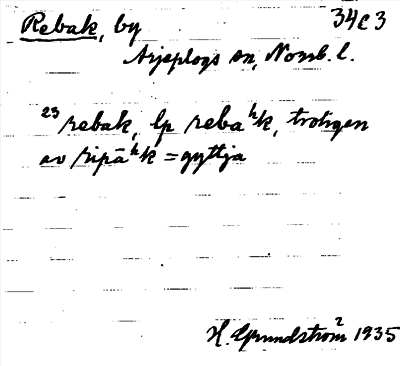 Rebak, by 34c3
Arjeplogs sn, Norrb. l.
23 rebak, lp rebaʰk, troligen
av ripāʰk = gyttja
H. Grundström 1935